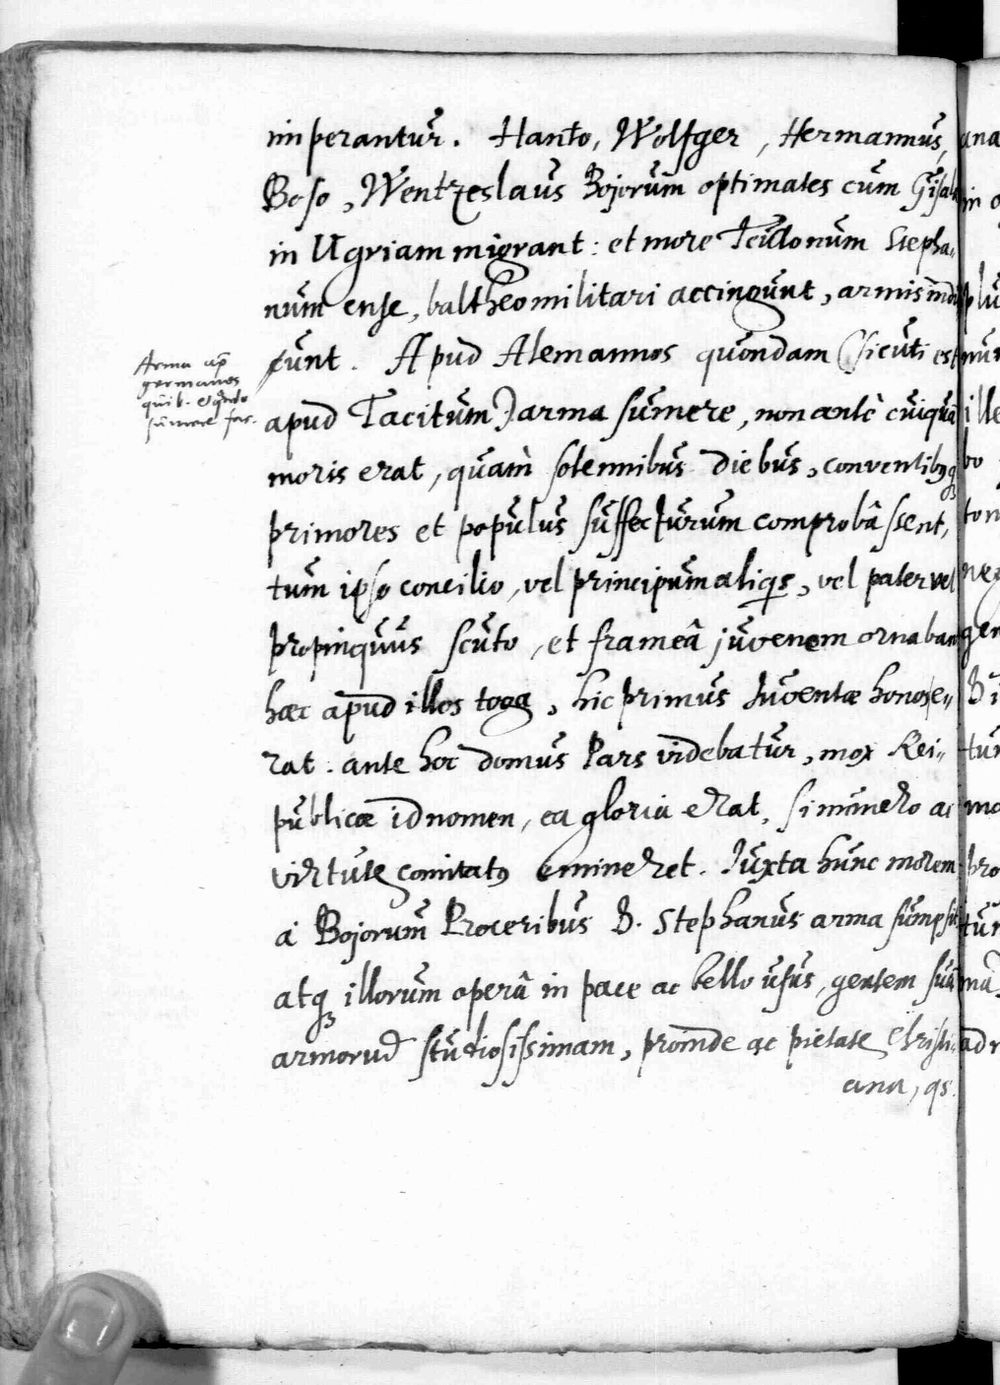 imperantur. Hanto, Wolfger, Hermannus,
Boso, Wentzeslaus Bojorum optimates cum Gisala
in Ugriam migrant: et more Teutonum Stepha-
num ense, baltheo militari accingunt, armis indu
cunt. Apud Alemannos quondam (sicuti est
apud Tacitum) arma sumere, non antè cuiquā
moris erat, quam̀ solennibus diebus, conventibusq
primores et populus suffecturum comprobâssent,
tum ipso concilio, vel principum aliqis, vel pater vel
propinquus scuto, et frameâ juvenem ornaban
hæc apud illos toga, hic primus Juventæ honos, e-
rat. ante hoc domus Pars videbatur, mox Rei-
publicæ id nomen, ea gloria erat, si numero ac
virtute comitatus emineret. Juxta hunc morem
à Bojorum Proceribus D. Stephanus arma sumpsit
atq illorum operâ in pace ac bello usus, gentem suā
armorum studiosissimam, proinde ac pietate Christi-
ana, qs.
Arma ap̄
germanos
quib. et qn̄do
sumere fas.